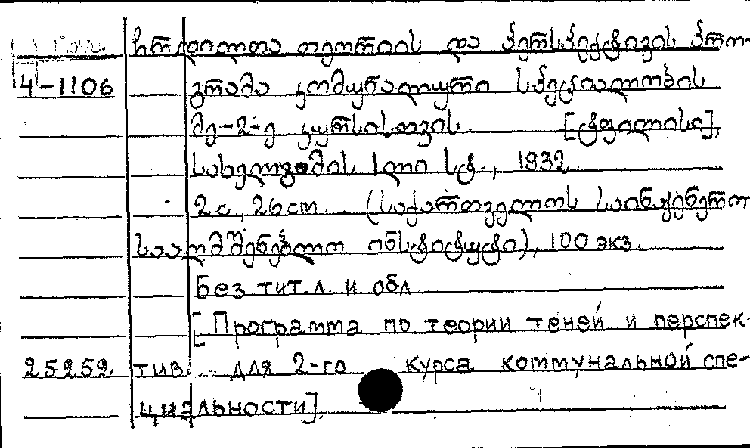 ჩრდილთა თეორიის და პერსპექტივის პრო-
4-1106 გრამა კომუნალური სპეციალობის
მე-2-ე კურსისთვის. [ტფილისი],
სახელგამის 1-ლი სტ., 1932
2 с., 26 cm. (საქართველოს საინჟენერო
სააღმშენებლო ინსტიტუტი), 100 экз.
Без тит. л и обл
[Программа по теории теней и перспек-
25252. тив для 2-го курса коммунальной спе-
циальности].